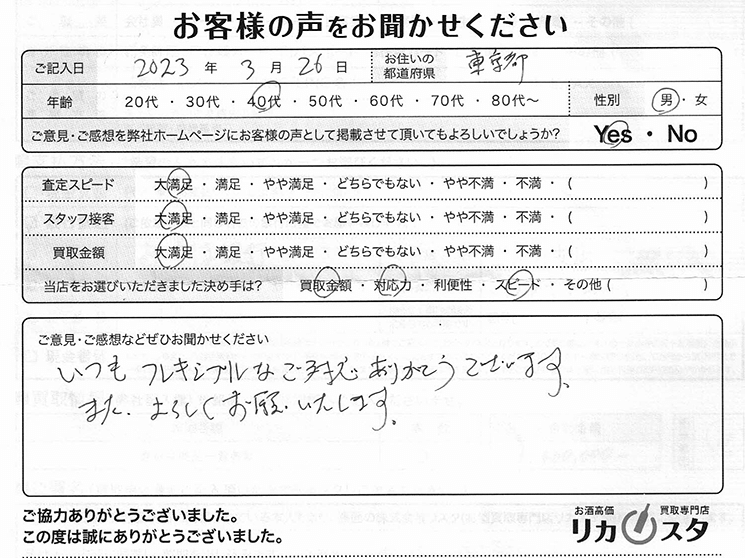 お客様の声をお聞かせください
ご記入日 2023 年 3 月 26 日 お住いの都道府県 東京都
年齢 20代 ・ 30代 ・ 40代 ・ 50代 ・ 60代 ・ 70代 ・ 80代～ 性別 男 ・ 女
ご意見・ご感想を弊社ホームページにお客様の声として掲載させて頂いてもよろしいでしょうか? Yes ・ No
査定スピード 大満足 ・ 満足 ・ やや満足 ・ どちらでもない ・ やや不満 ・ 不満 ・ ( )
スタッフ接客 大満足 ・ 満足 ・ やや満足 ・ どちらでもない ・ やや不満 ・ 不満 ・ ( )
買取金額 大満足 ・ 満足 ・ やや満足 ・ どちらでもない ・ やや不満 ・ 不満 ・ ( )
当店をお選びいただきました決め手は? 買取金額 ・ 対応力 ・ 利便性 ・ スピード ・ その他 ( )
ご意見・ご感想などぜひお聞かせください
いつもフレキシブルなご対応ありがとうございます。
また、よろしくお願いいたします。
ご協力ありがとうございました。
この度は誠にありがとうございました。
お酒高価 買取専門店
リカスタ